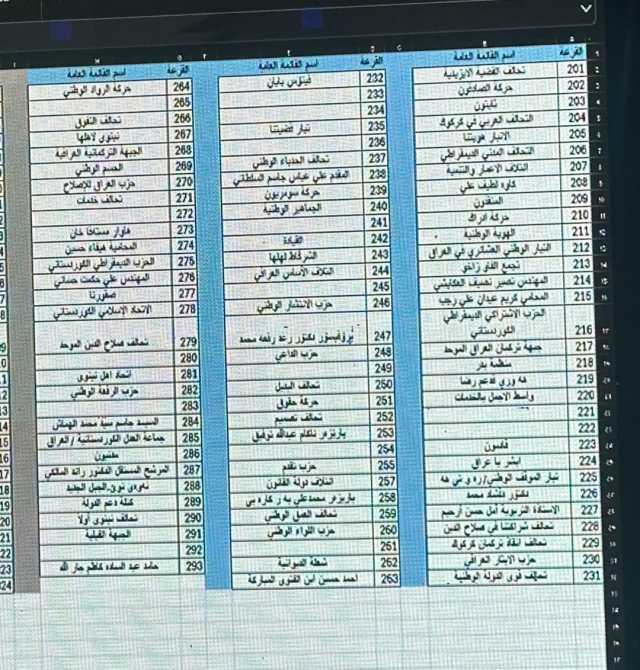 القرعة اسم القائمة العامة
201 تحالف القضية الايزيدية
202 حركة الصادقون
203 ثابتون
204 التحالف العربي في كركوك
205 الانبار هويتنا
206 التحالف المدني الديمقراطي
207 ائتلاف الاعمار والتنمية
208 كاوه لطيف علي
209 المنقذون
210 حركة ادراك
211 الهوية الوطنية
212 التيار الوطني العشائري في العراق
213 تجمع الفاو زاخو
214 المهندس نصير
215 المحامي كريم عيدان علي رجب
216 الحزب الاشتراكي الديمقراطي الكوردستاني
217 جبهة تركمان العراق الموحد
218 منظمة بدر
219
220 واسط الاجمل بالخدمات
221
222
223 قادمون
224 ابشر يا عراق
225 تيار الموقف الوطني
226 دكتور دلشاد محمد
227 الاستاذة التربوية أمل حسن
228 تحالف شراكتنا في صلاح الدين
229 تحالف انقاذ تركمان كركوك
230 حزب الايثار العراقي
231 تحالف قوى الدولة الوطنية
القرعة اسم القائمة العامة
232 بابان
233
234
235 تيار قضيتنا
236
237 تحالف الحدباء الوطني
238 المقدم علي عباس جاسم السلطاني
239 حركة سومريون
240 الجماهير الوطنية
241
242 القيادة
243 الشرقاط اهلها
244 ائتلاف الأساس العراقي
245
246 حزب الانتشار الوطني
247 بروفيسور دكتور رعد رفعه محمد
248 حزب الداعي
249
250 تحالف البديل
251 حركة حقوق
252 تحالف تصميم
253 پارێزەر عبدالله توفيق
254
255 حزب تقدم
256 ائتلاف دولة القانون
258
259 تحالف العمق الوطني
260 حزب اللواء الوطني
261
262
263 احمد حسين ابن القرى المباركة
القرعة اسم القائمة العامة
264 حركة الرواد الوطني
265
266 تحالف التفوق
267 نينوى لاهلها
268 الجبهة التركمانية العراقية
269 الحسم الوطني
270 حزب العراق للإصلاح
271 تحالف خدمات
272
273 خان
274 المحامية هيفاء حسين
275 الحزب الديمقراطي الكوردستاني
276 المهندس علي حكمت حساني
277 صقورنا
278 الاتحاد الاسلامي الكوردستاني
279 تحالف صلاح الدين الموحد
280
281 اتحاد اهل نينوى
282 حزب الرفعة الوطني
283
284 السيد جاسم سيد محمد
285 جماعة العدل الكوردستانية / العراق
286 مدنيون
287 المرشح المستقل الدكتور رائد المالكي
288 الجيل الجديد
289 كتلة دعم الدولة
290 تحالف نينوى أولا
291 الجبهة القبلية
292
293 حامد عبد الساده كاظم جار الله